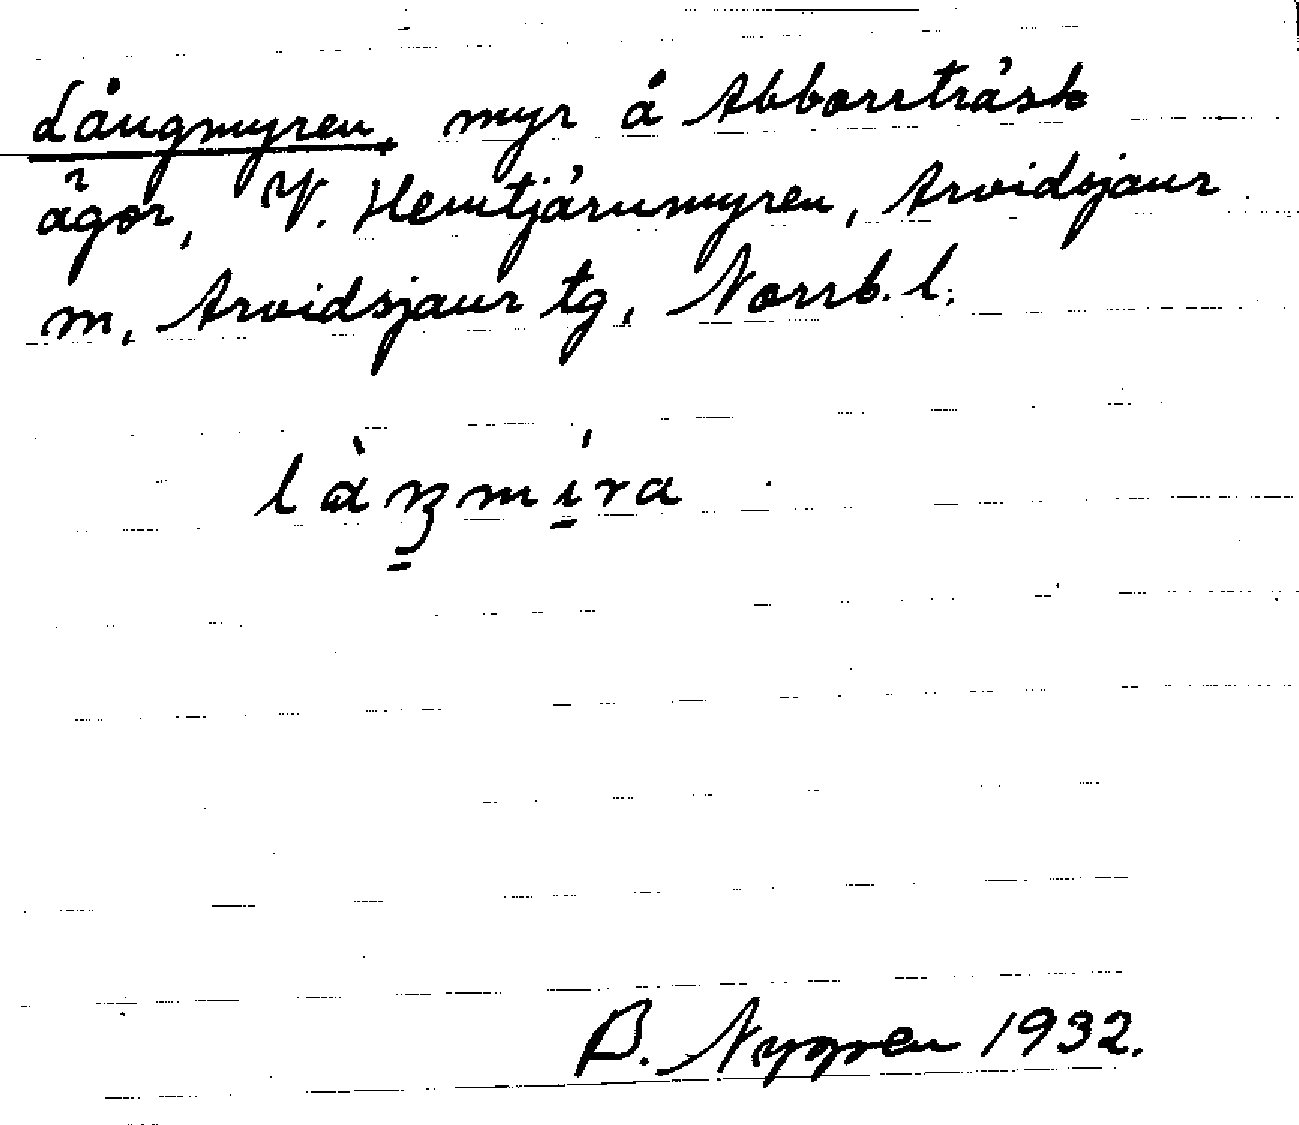 Långmyren, myr å Abborrträsk
ägor, V. Hemtjärnmyren, Arvidsjaur
sn, Arvidsjaur tg, Norrb. l.
B. Nygren 1932.